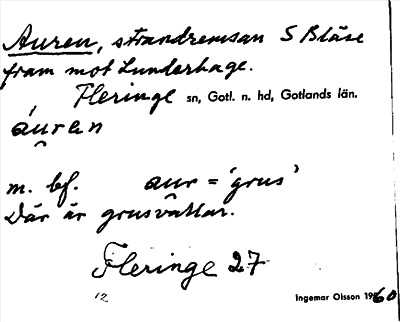 Auren, strandremsan S Bläse
fram mot Lunderhage.
Fleringe sn, Gotl. n. hd, Gotlands län.
áuren
m. bf. aur = 'grus'
Där är grusvallar.
Fleringe 27
12 Ingemar Olsson 1960